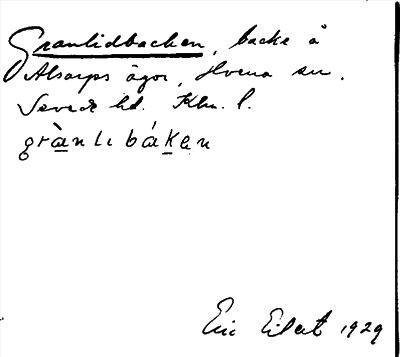 Granlidbacken, backe å
Alsarps ägor, Hvena sn.
Sevede hd. Klm. l.
gràn lı báken
Eric Eilert 1929